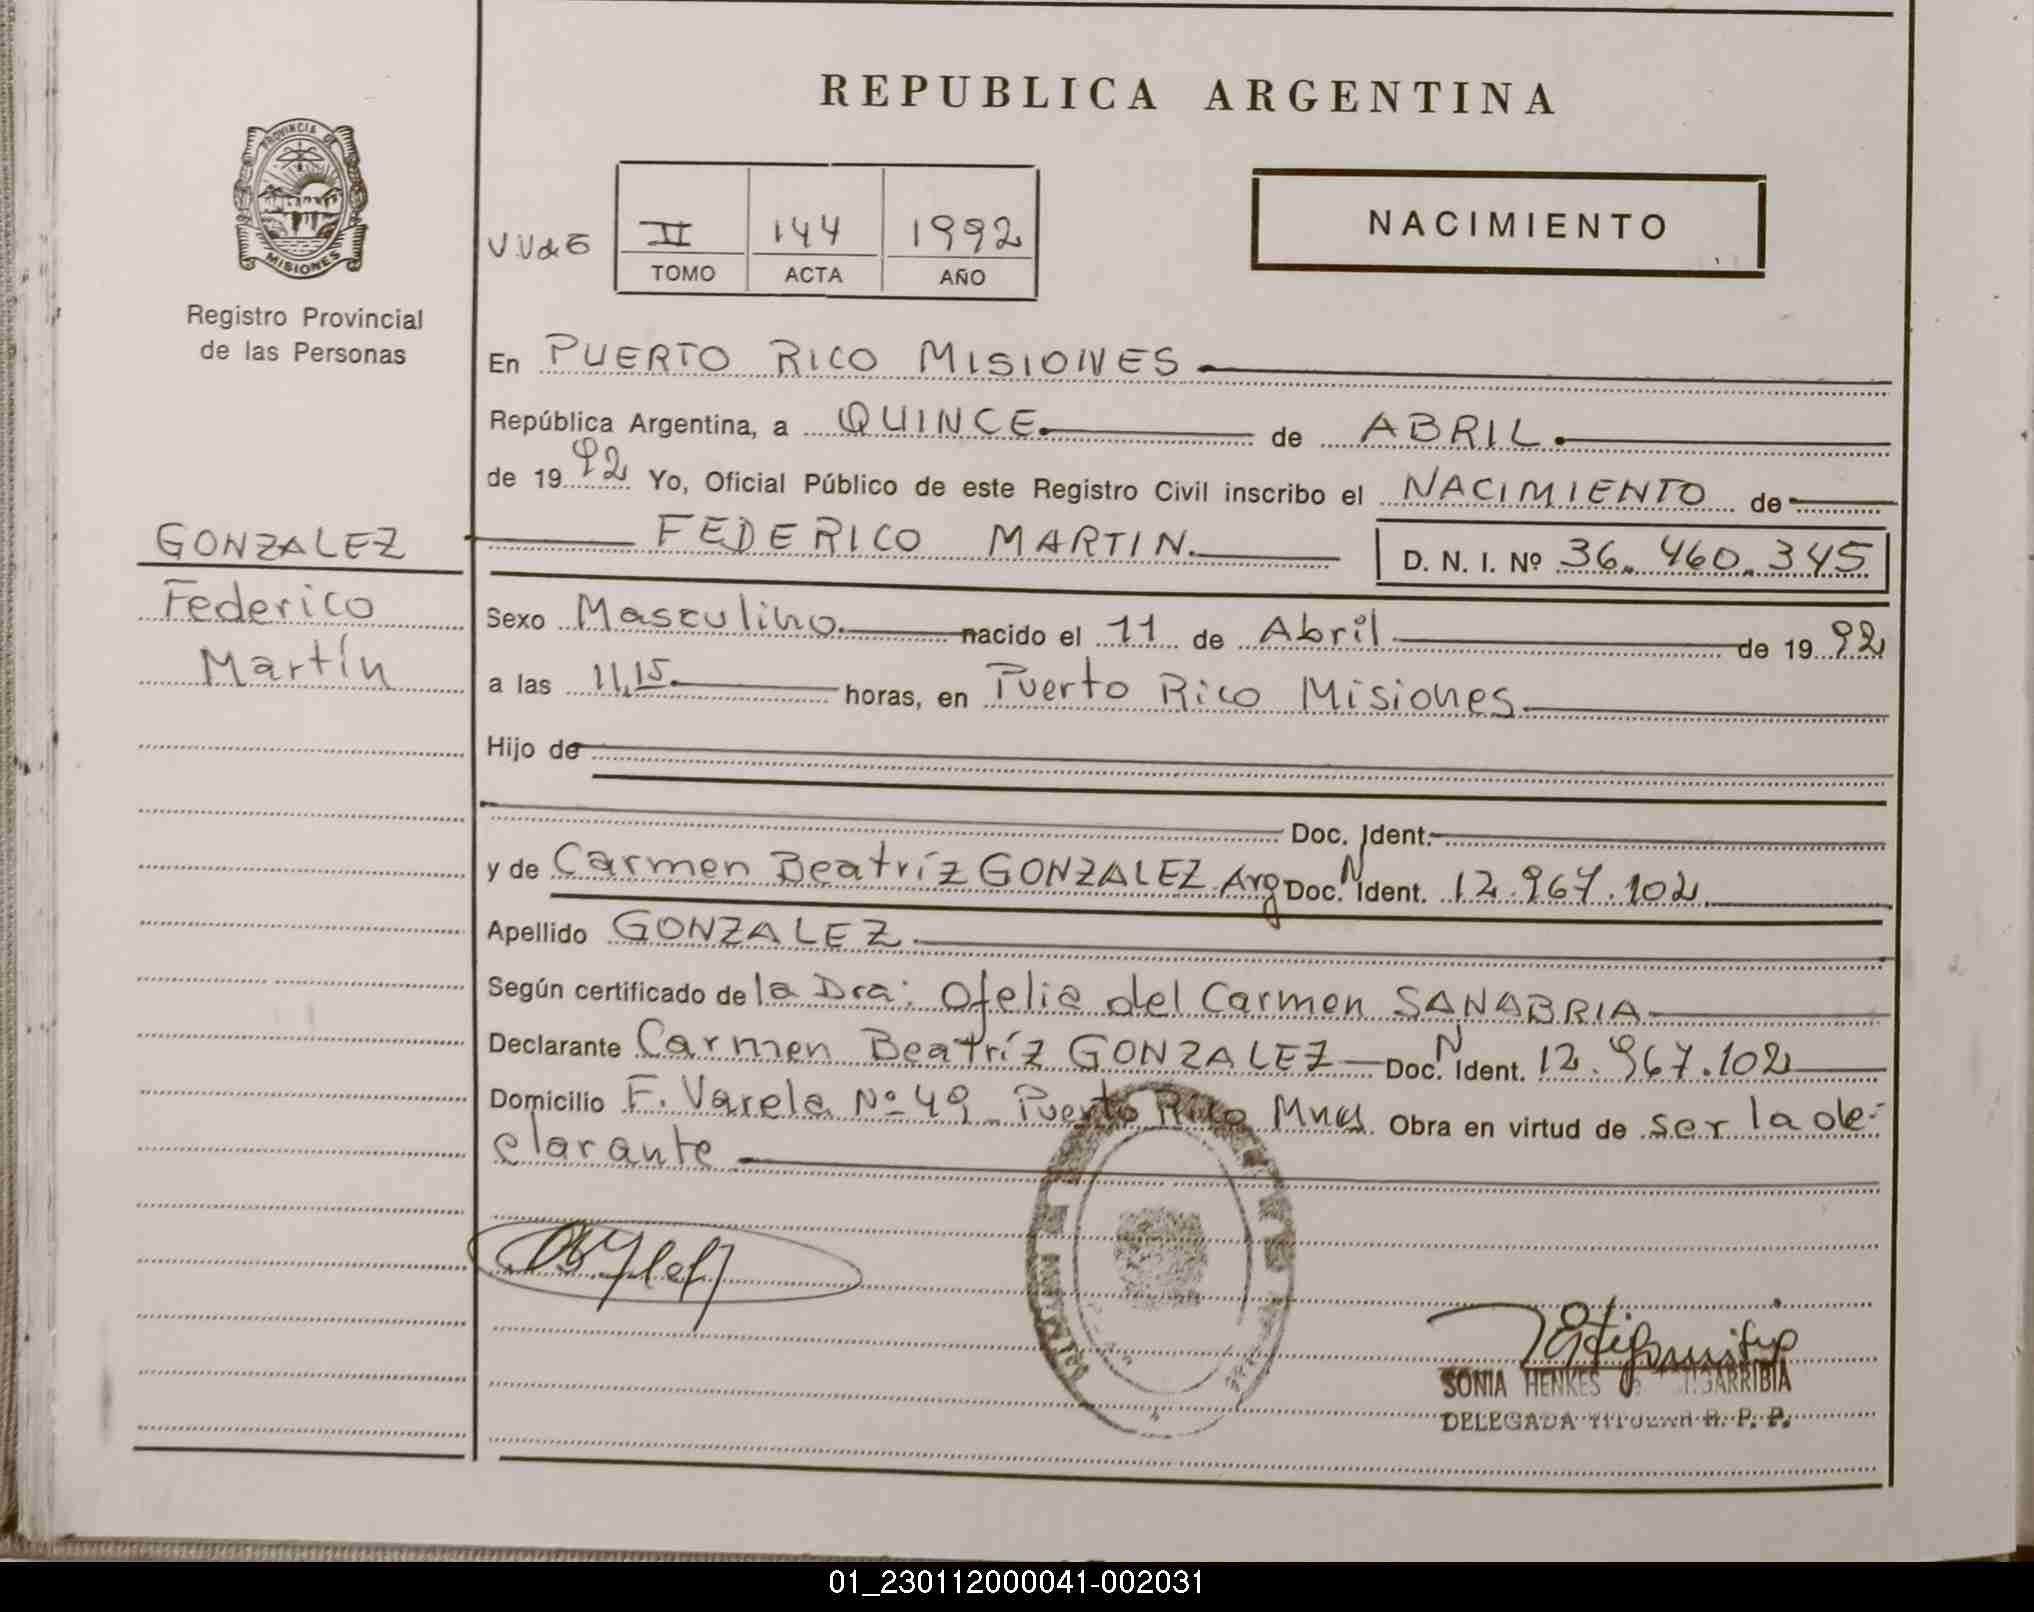 REPUBLICA ARGENTINA
PROVINCIA DE
MISIONES
Registro Provincial
de las Personas
V.V de E
II 144 1992
TOMO ACTA AÑO
NACIMIENTO
En PUERTO RICO MISIONES
República Argentina, a QUINCE. de ABRIL.
de 1992 Yo, Oficial Público de este Registro Civil inscribo el NACIMIENTO de
GONZALEZ
Federico
Martín
FEDERICO MARTIN. D. N. I. Nº 36.460.345
Sexo Masculino. nacido el 11 de Abril de 1992
a las 11,15. horas, en Puerto Rico Misiones.
Hijo de
Doc. Ident.
y de Carmen Beatríz GONZALEZ Arg Doc. N Ident. 12.967.102.
Apellido GONZALEZ.
Según certificado de la Dra: Ofelia del Carmen SANABRIA
Declarante Carmen Beatríz GONZALEZ Doc. N Ident. 12.967.102
Domicilio F. Varela Nº 49 - Puerto Rico Mnes. Obra en virtud de ser la de-
clarante
SONIA HENKES
DELEGADA TITULAR R. P. P.
01_230112000041-002031